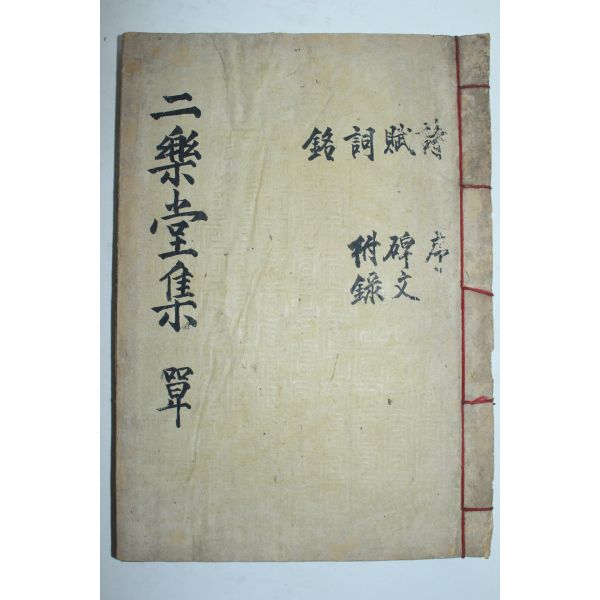 二樂堂集 單
詩
賦
詞
銘
序
碑文
附錄